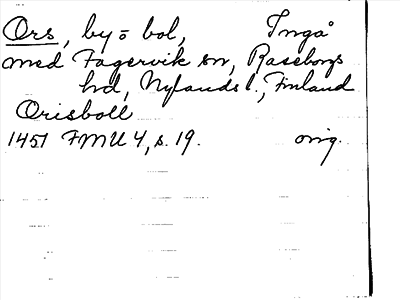 Ors, by = bol, Ingå
med Fagervik sn, Raseborgs
hd, Nylands l., Finland
Orisboll
1451 FMU 4, s. 19. orig.